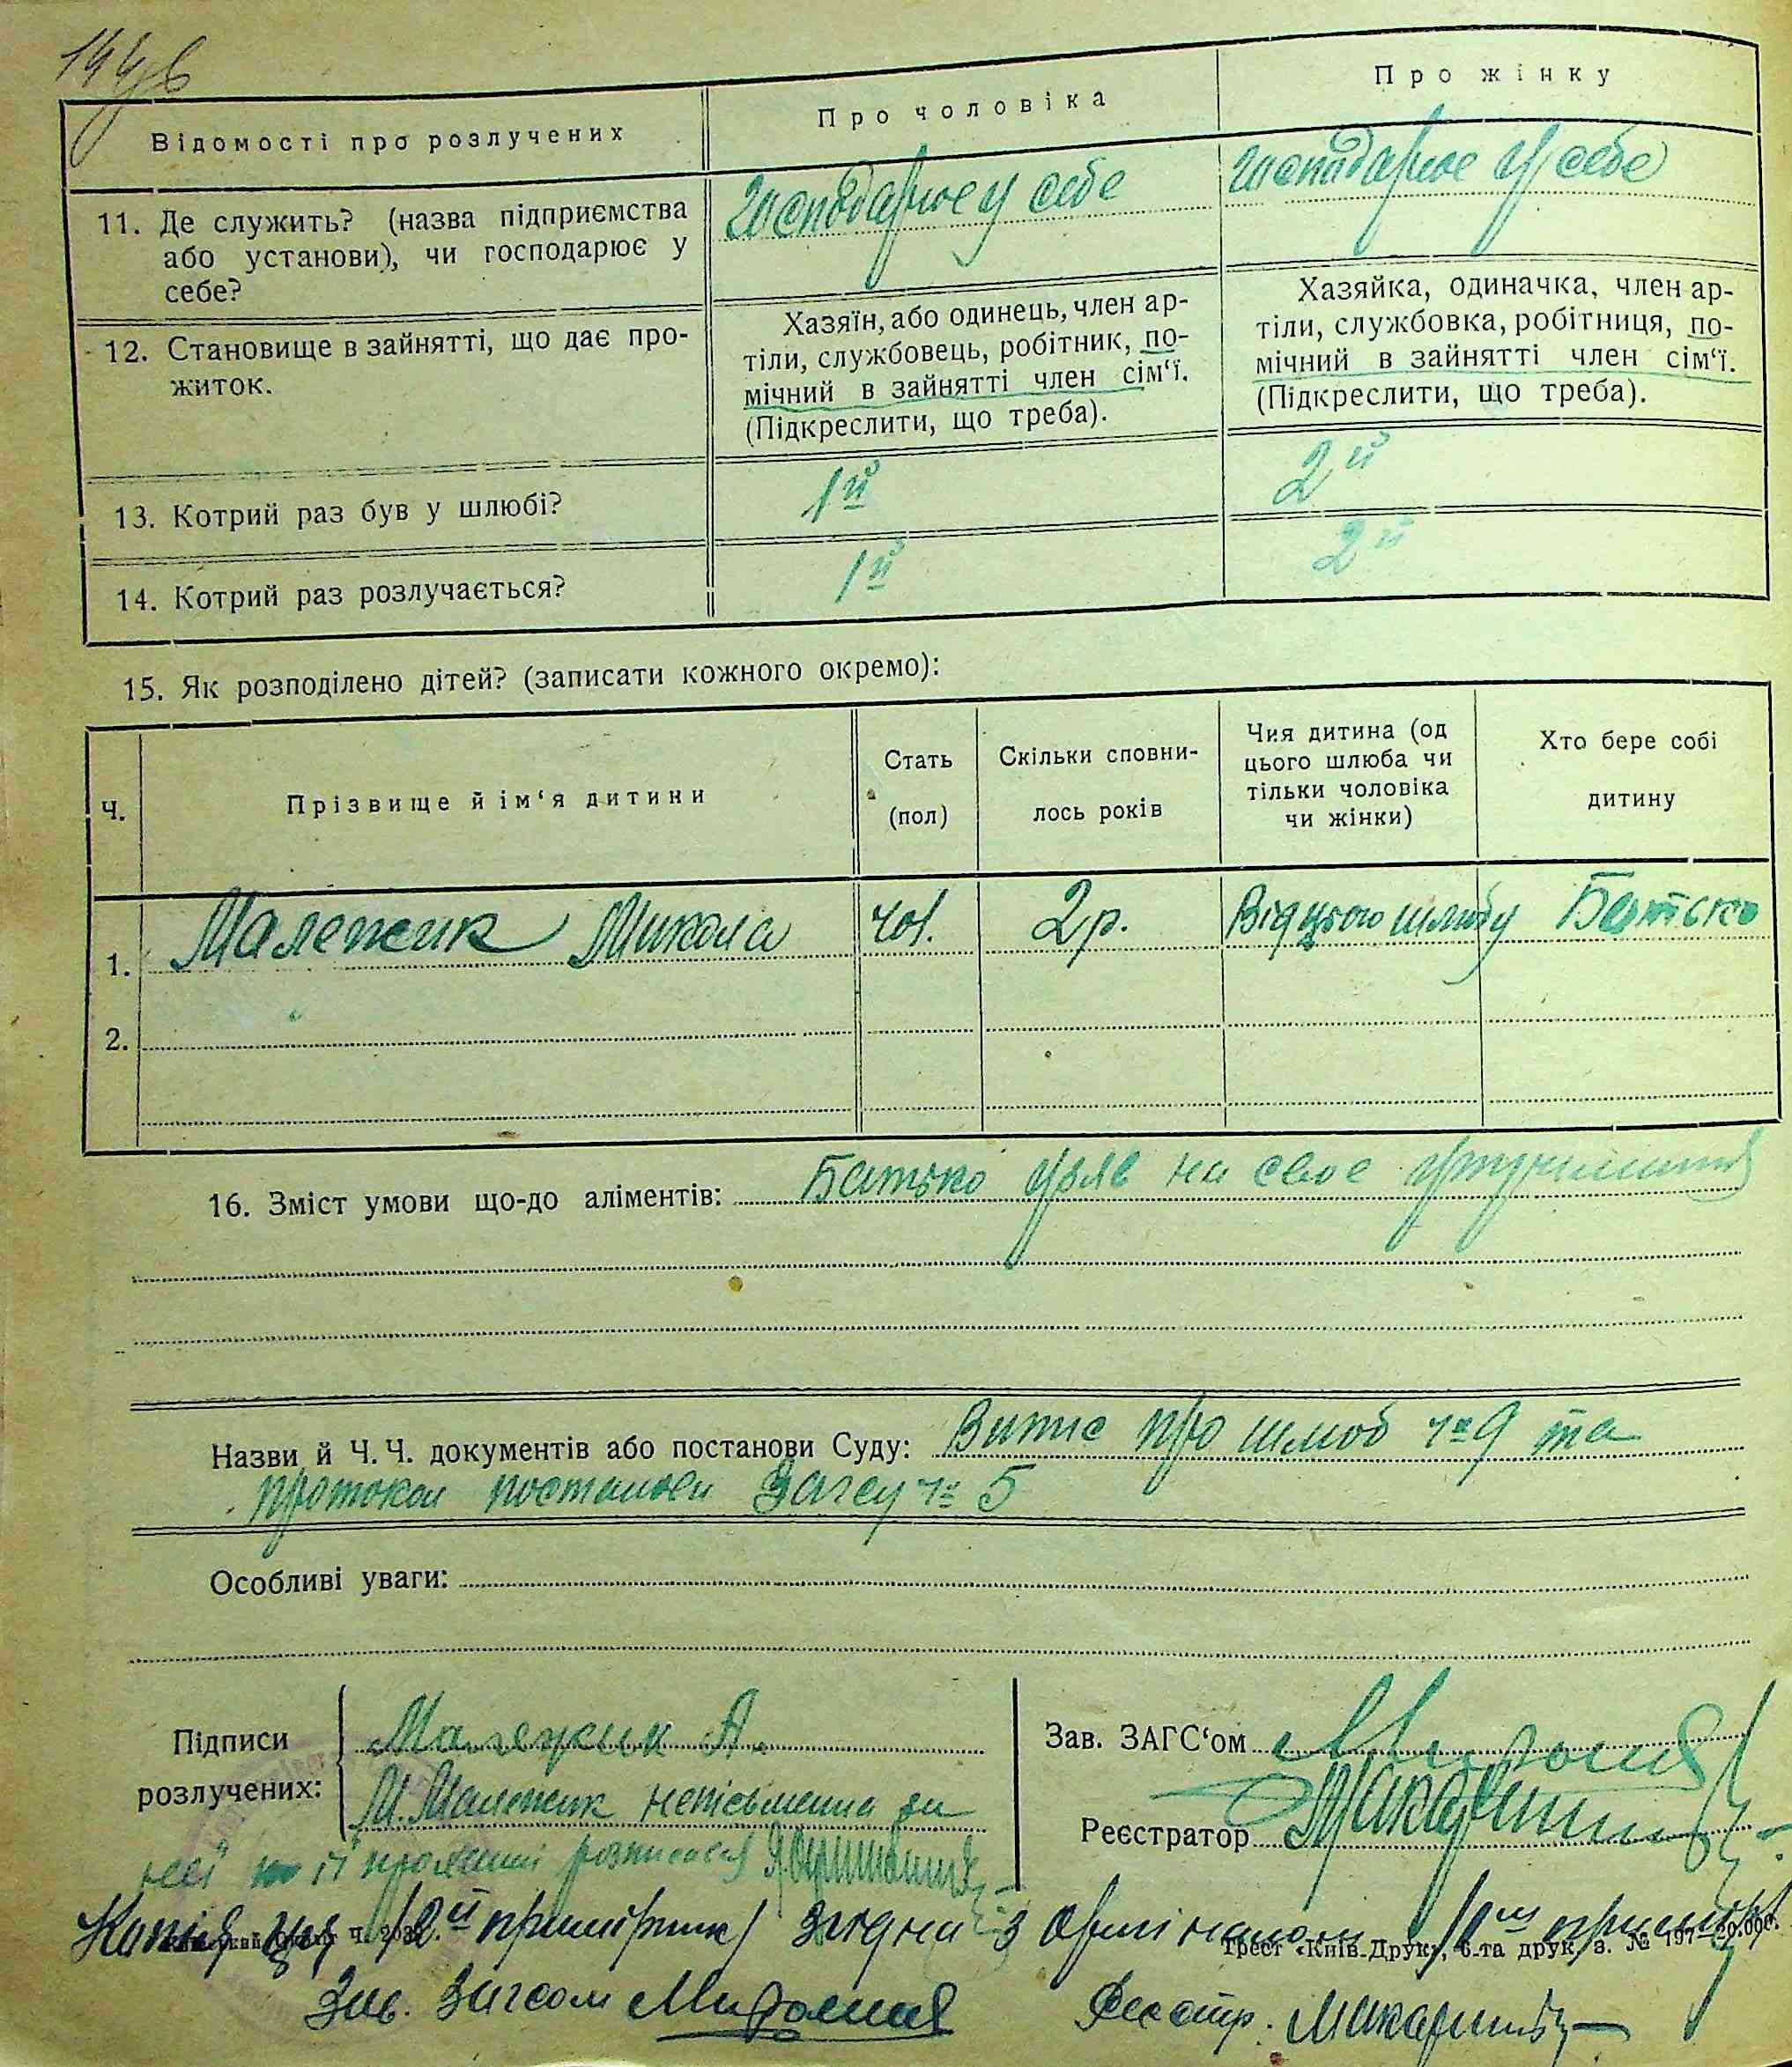 144зв
Відомості про розлучених
Про чоловіка
Про жінку
11. Де служить? (назва підприємства
або установи), чи господарює у
себе?
господарює у себе
господарює у себе
12. Становище в зайнятті, що дає про-
житок.
Хазяїн, або одинець, член ар-
тіли, службовець, робітник, по-
мічний в зайнятті член сім‘ї.
(Підкреслити, що треба).
Хазяйка, одиначка, член ар-
тіли, службовка, робітниця, по-
мічний в зайнятті член сім‘ї.
(Підкреслити, що треба).
13. Котрий раз був у шлюбі?
1й
2й
14. Котрий раз розлучається?
1й
2й
15. Як розподілено дітей? (записати кожного окремо):
Ч.
Прізвище й ім‘я дитини
Стать
(пол)
Скільки сповни-
лось років
Чия дитина (од
цього шлюба чи
тільки чоловіка
чи жінки)
Хто бере собі
дитину
1. Малежик Микола чол. 2р. Від цього шлюбу Батько
2.
16. Зміст умови що-до аліментів: Батько узяв на своє утримання
Назви й Ч.Ч. документів або постанови Суду: Витяг про шлюб ч 9 та
протокол постанови Загсу ч 5
Особливі уваги:
Підписи
розлучених:
Малежик А.
М. Малежик неписьменна за
неї по її проханні розписався
Зав. ЗАГС‘ом
Реєстратор
Копія ця /2й примірник/ згідна з оригіналом /1м примір/
Трест «Київ-Друк», 6-та друк, з. № 197—20.000.
Зав. Загсом
Реєстр.